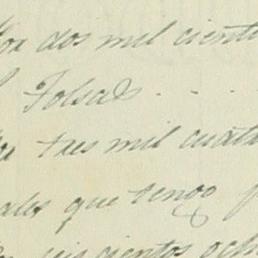 por dos mil ciento
Folsas - - -
por tres mil cuatro
ales que tengo
seiscientos och